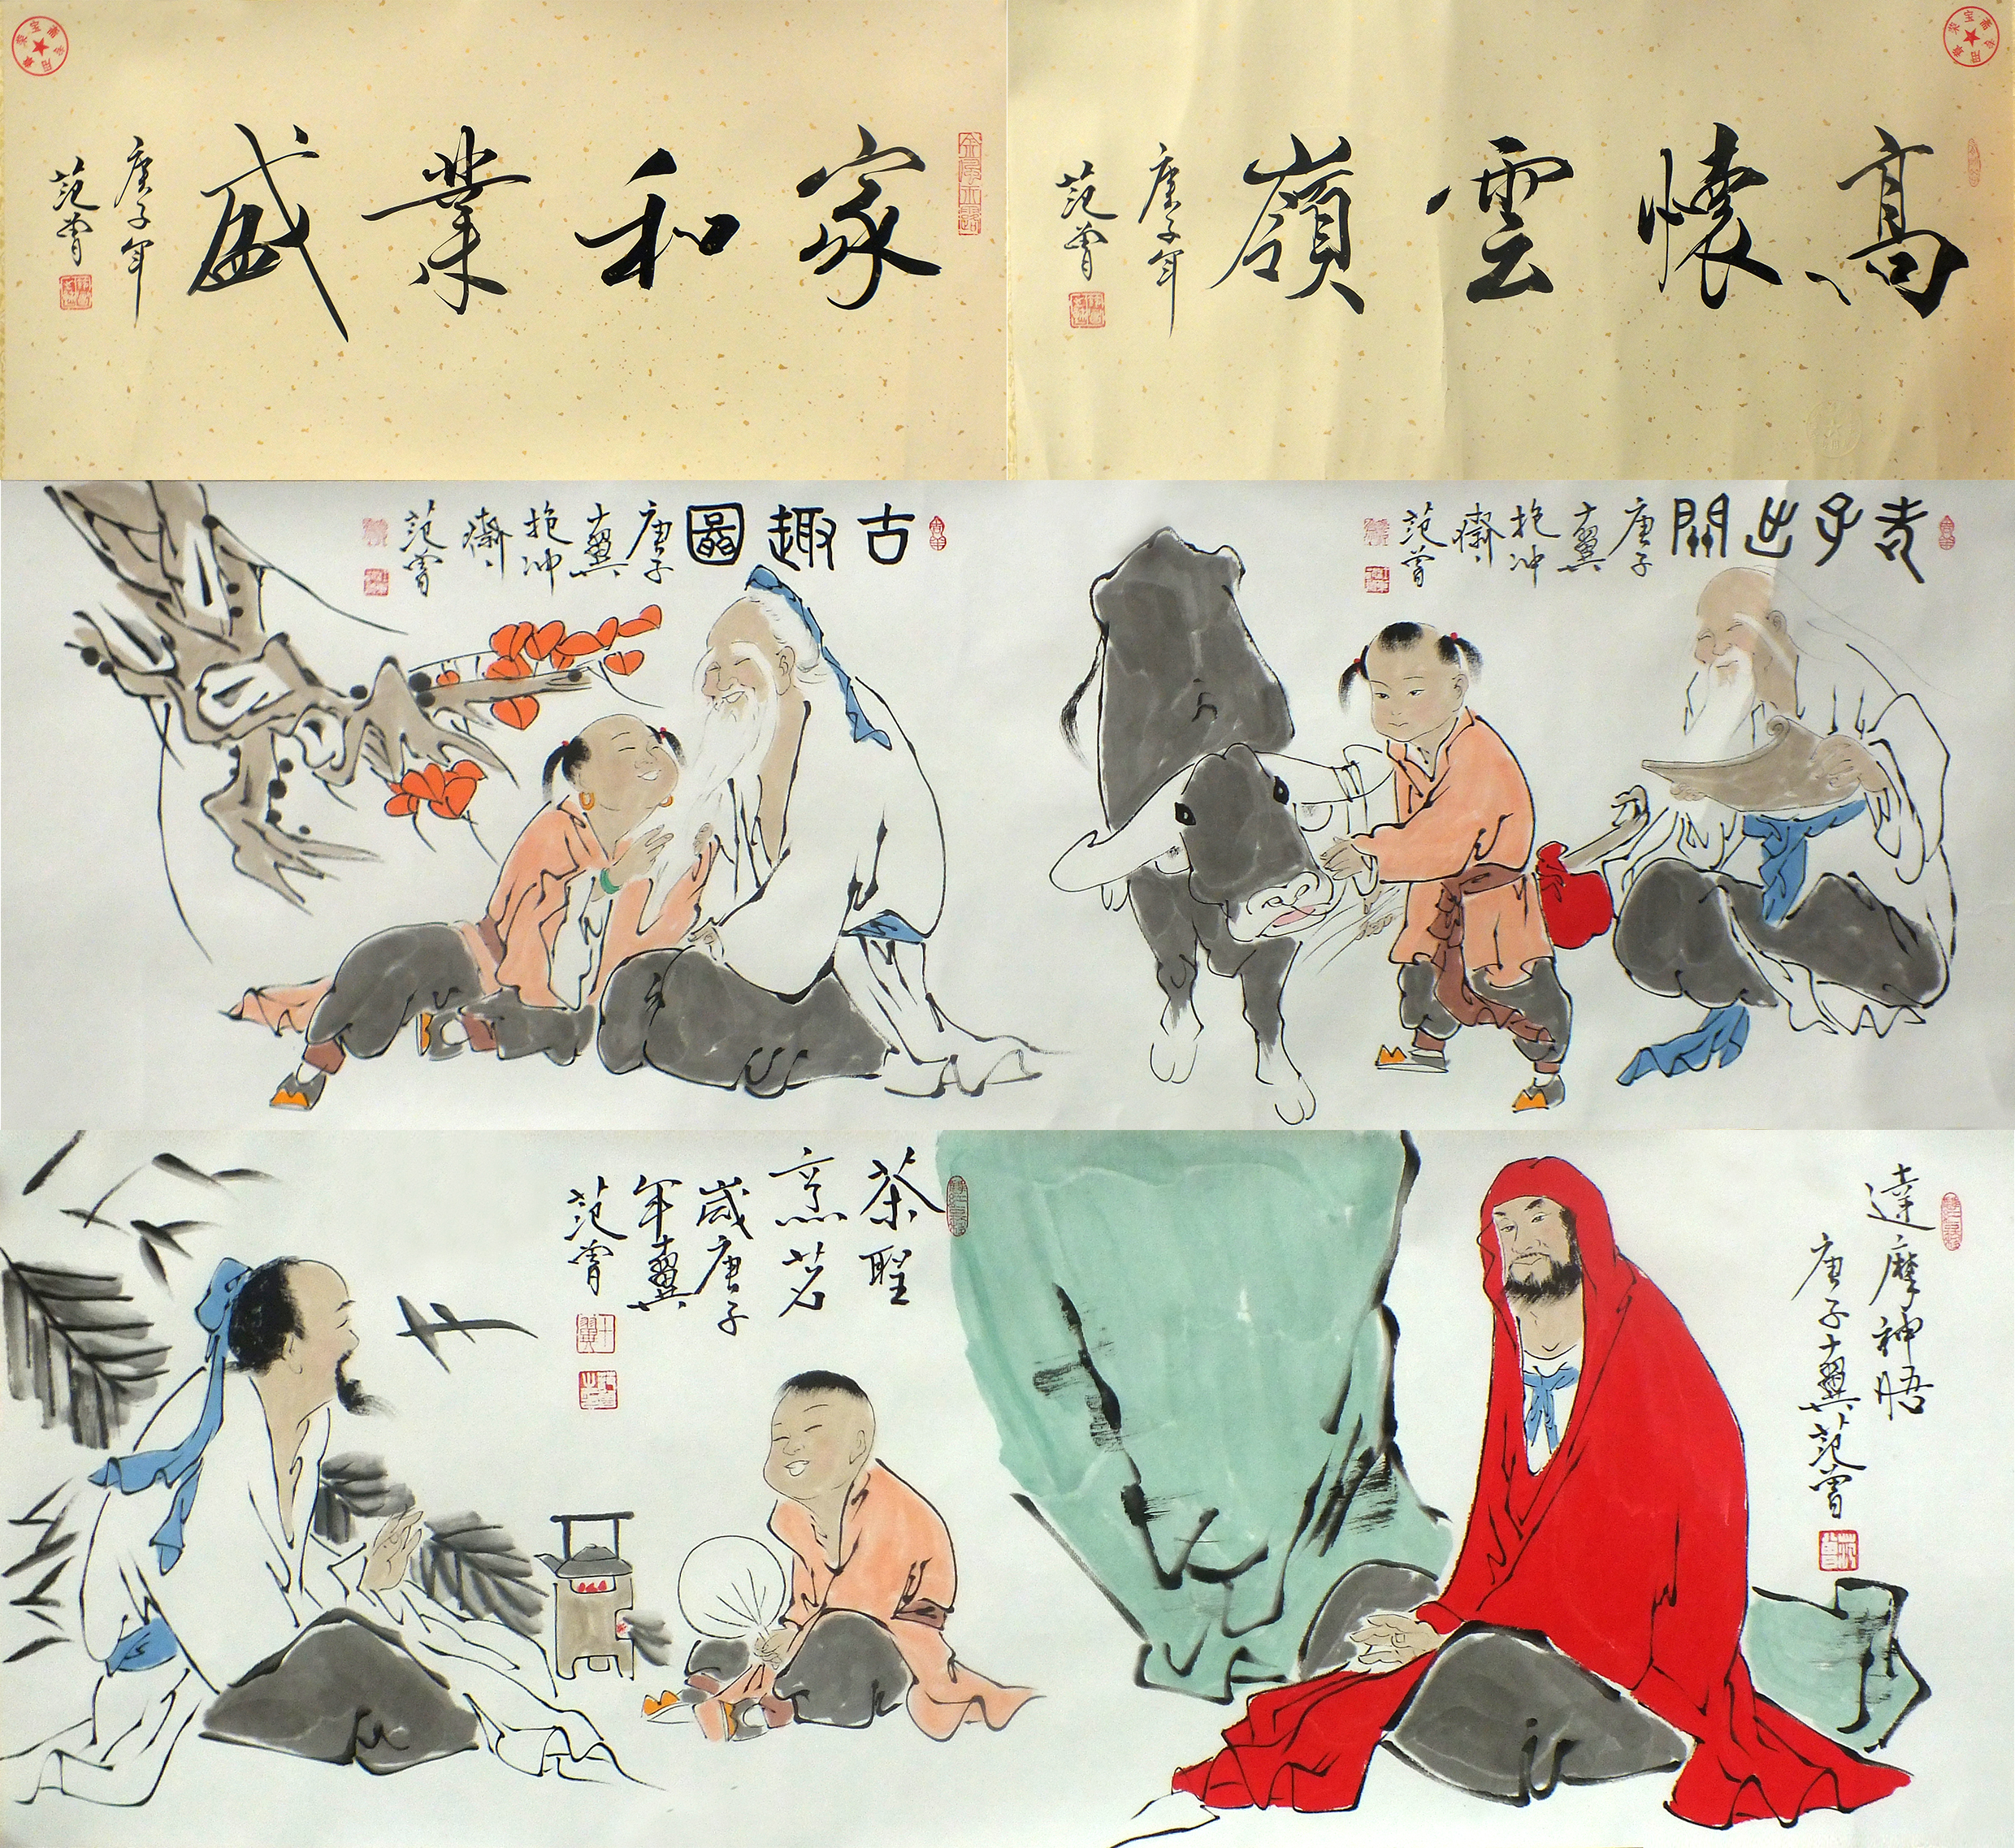 家和業盛
庚子年
范曾
高懷雲嶺
庚子年
范曾
古趣圖
庚子
十翼
抱冲
齋
范曾
老子出關
庚子
十翼
抱冲
齋
范曾
茶聖
烹茗
歲庚子
年十翼
范曾
達摩神悟
庚子十翼范曾